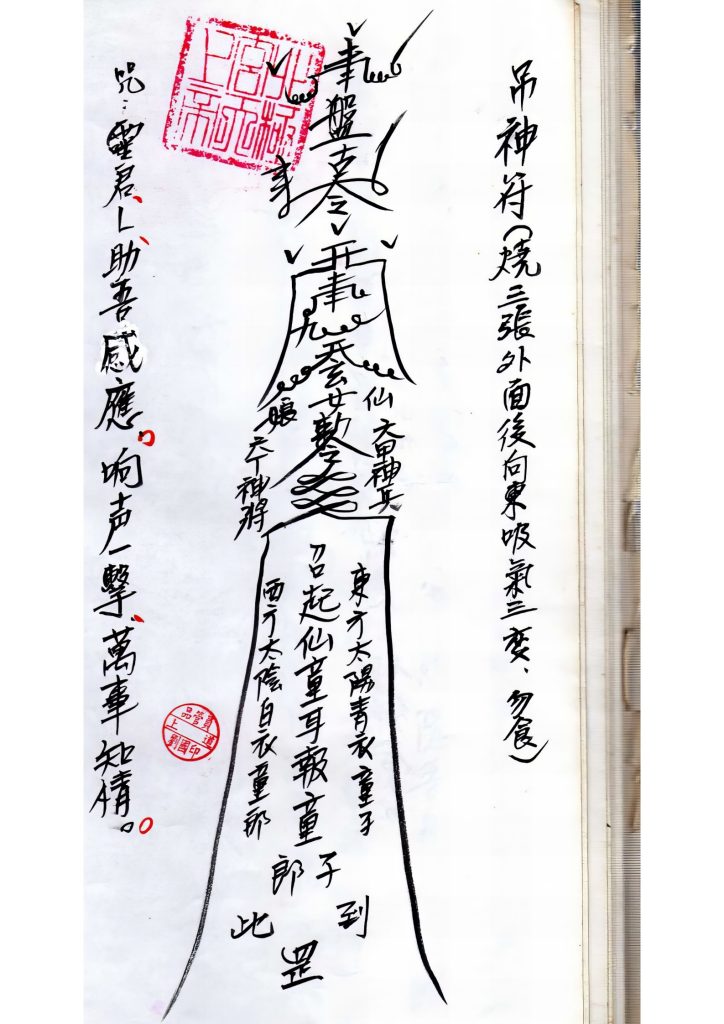 吊神符(燒三張外面後向東吸氣三变、勿食)
奉
盤古令
开
奉
九
天玄女勅令
仙
娘
六甲神兵
六丁神將
東方太陽青衣童子
召起仙童耳報童
子
郎
西方太陰白衣童郎
到
此
罡
咒:靈君上助吾感應。响声一擊、萬事知情。
北極
宮玄天
上帝